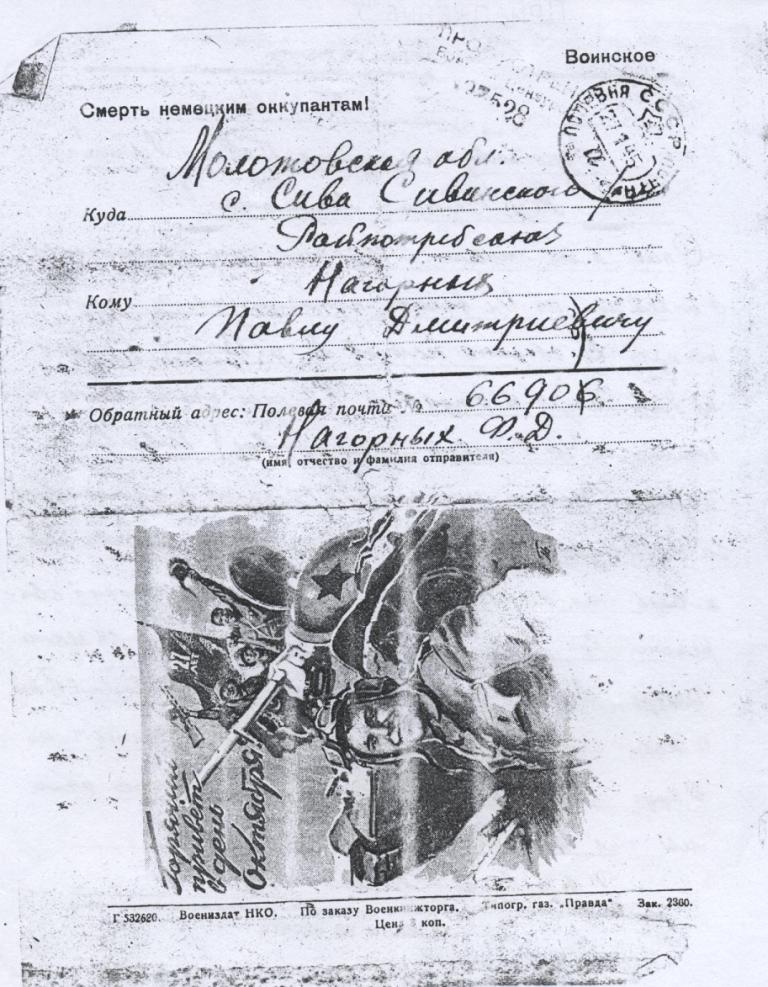 Воинское
Смерть немецким оккупантам!
27528
Молотовская обл.
Куда с. Сива Сивинского
Райпотребсоюз
Кому Нагорных
Павлу Дмитриевичу
Обратный адрес: Полевая почта № 66906
Нагорных Ф. Д.
(имя, отчество и фамилия отправителя)
27
Горячий
привет
в день
Октября!
Г 532620. Воениздат НКО. По заказу Военкнижторга. Типогр. газ. „Правда“ Зак. 2360.
Цена коп.